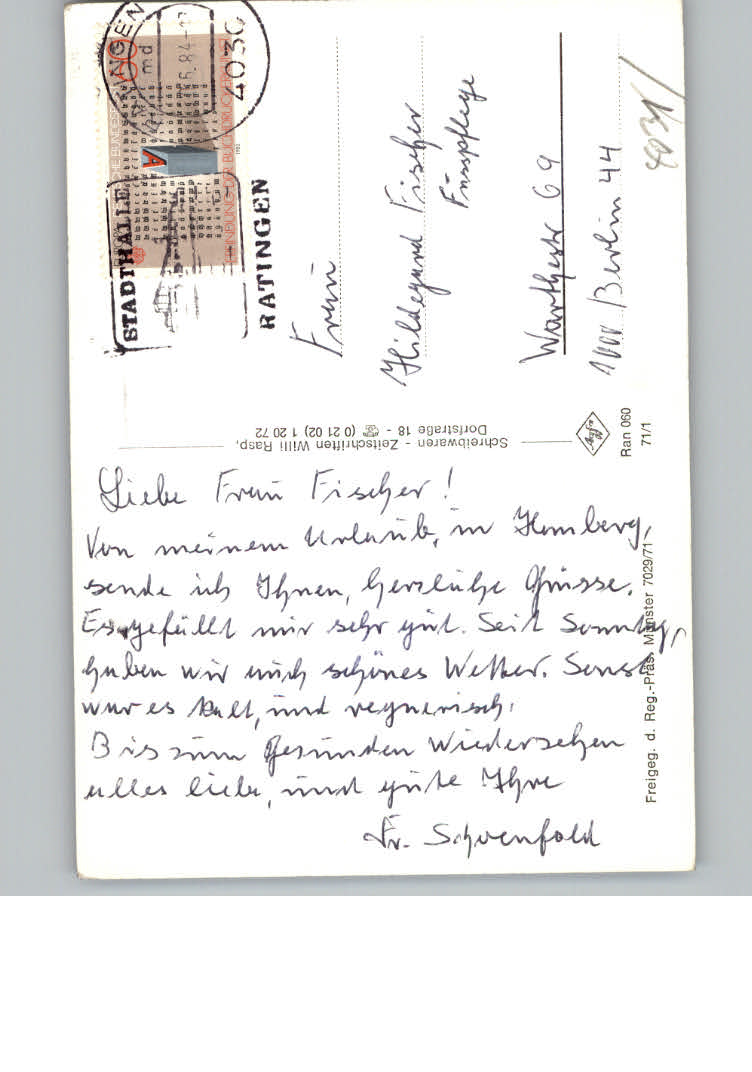 Liebe Frau Fischer!
Von meinem Urlaub, in Homberg,
sende ich Ihnen, herzliche Grüsse.
Es gefällt mir sehr gut. Seit Sonntag,
haben wir auch schönes Wetter. Sonst
war es kalt, und regnerisch.
Bis zum gesunden Wiedersehen
alles liebe, und gute Ihre
Fr. Schoenfeld
Frau
Hildegund Fischer
Fusspflege
Warthestr 69
1000 Berlin 44
4031
STADTHALLE
RATINGEN
4030
6.84
DEUTSCHE BUNDESPOST
ERFINDUNG DES BUCHDRUCKS
A
Schreibwaren - Zeitschriften Willi Rasp,
Dorfstraße 18 - ☏ (0 21 02) 1 20 72
Agfa
Ran 060
71/1
Freigeg. d. Reg.-Präs. Münster 7029/71